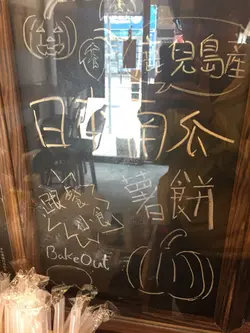 鹿兒島產
日本南瓜
薯餅
BakeOut